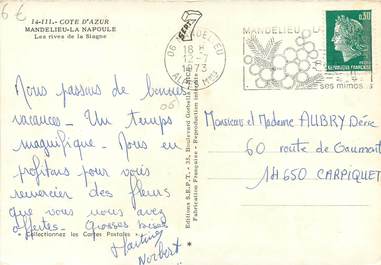 6 €
14-111.- COTE D'AZUR
MANDELIEU-LA NAPOULE
Les rives de la Siagne
Nous passons de bonnes
vacances - Un temps
magnifique - Nous en
profitons pour vous
remercier des fleurs
que vous nous avez
offertes - Grosses bises
Martine
Norbert
Collectionnez les Cartes Postales
(06)
Editions S.E.P.T.
Fabrication Française - Reproduction
SEPT
06 MANDELIEU
18 H
12-7
1973
MANDELIEU
ses mimosas
0,30
POSTES
Monsieur et Madame AUBRY Désiré
60 route de Caumont
14650 CARPIQUET